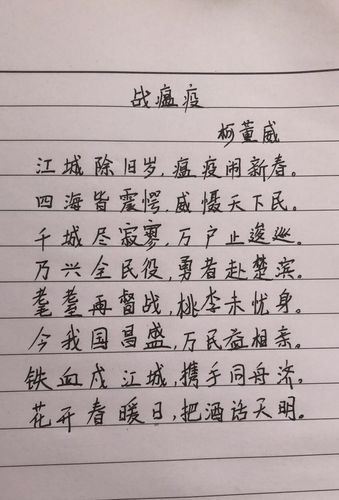 战瘟疫
柯董威
江城除旧岁,瘟疫闹新春。
四海皆震愕,威慑天下民。
千城尽寂寥,万户止逡巡。
乃兴全民役,勇者赴楚滨。
耄耋再督战,桃李未忧身。
今我国昌盛,万民益相亲。
铁血戍江城,携手同舟济。
花开春暖日,把酒话天明。